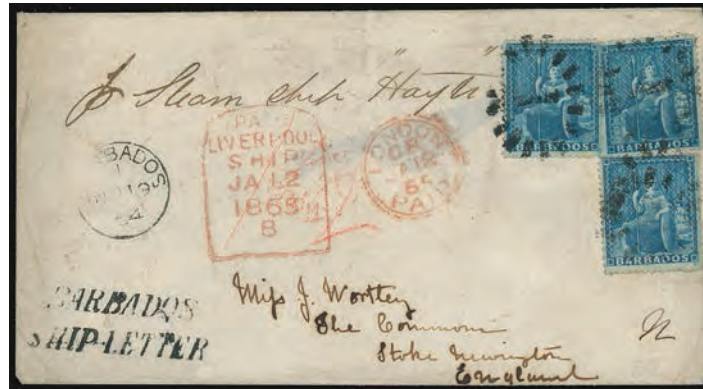 p Steam ship "Hayti"
BARBADOS
BARBADOS
BARBADOS
BARBADOS
1
PAID
LIVERPOOL
SHIP
JA 12
1865
8
LONDON
PAID
BARBADOS
SHIP-LETTER
Miss J. Wortley
The Common
Stoke Newington
England
N